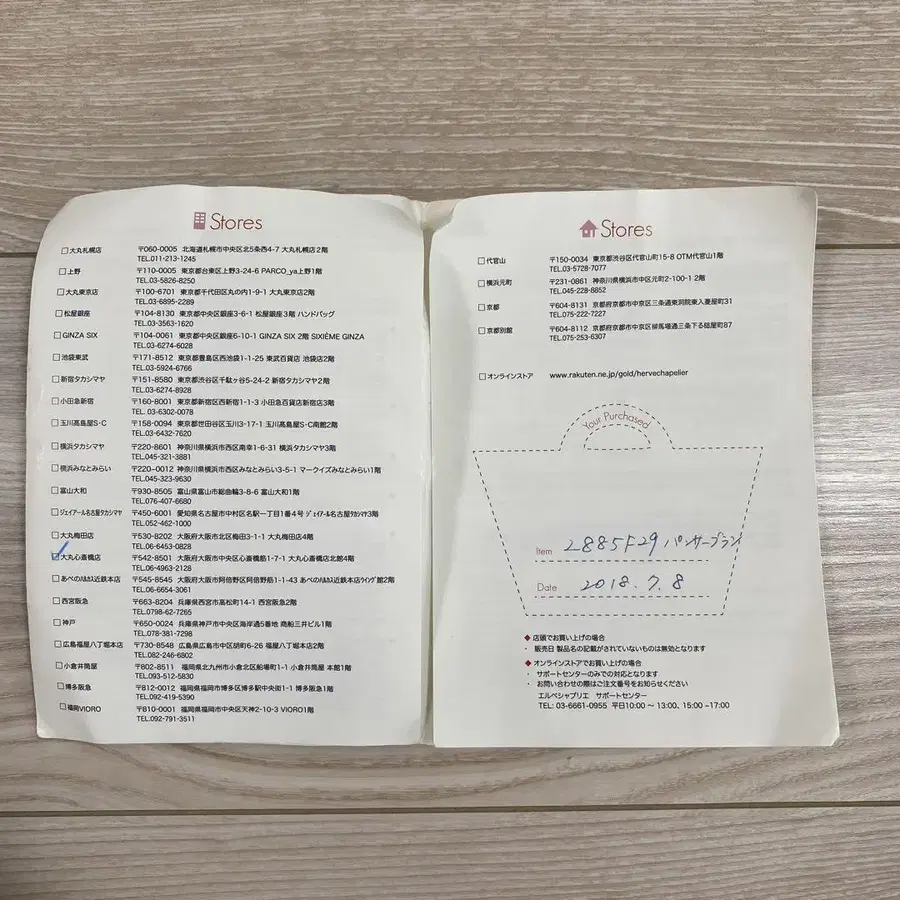 Stores
大丸札幌店 〒060-0005 北海道札幌市中央区北5条西4-7 大丸札幌店2階
TEL.011-213-1245
上野 〒110-0005 東京都台東区上野3-24-6 PARCO_ya上野1階
TEL.03-5826-8250
大丸東京店 〒100-6701 東京都千代田区丸の内1-9-1 大丸東京店2階
TEL.03-6895-2289
松屋銀座 〒104-8130 東京都中央区銀座3-6-1 松屋銀座3階 ハンドバッグ
TEL.03-3563-1620
GINZA SIX 〒104-0061 東京都中央区銀座6-10-1 GINZA SIX 2階 SIXIÈME GINZA
TEL.03-6274-6028
池袋東武 〒171-8512 東京都豊島区西池袋1-1-25 東武百貨店 池袋店2階
TEL.03-5924-6766
新宿タカシマヤ 〒151-8580 東京都渋谷区千駄ヶ谷5-24-2 新宿タカシマヤ2階
TEL.03-6274-8928
小田急新宿 〒160-8001 東京都新宿区西新宿1-1-3 小田急百貨店新宿店3階
TEL.03-6302-0078
玉川髙島屋S・C 〒158-0094 東京都世田谷区玉川3-17-1 玉川髙島屋S・C南館2階
TEL.03-6432-7620
横浜タカシマヤ 〒220-8601 神奈川県横浜市西区南幸1-6-31 横浜タカシマヤ3階
TEL.045-321-3881
横浜みなとみらい 〒220-0012 神奈川県横浜市西区みなとみらい3-5-1 マークイズみなとみらい1階
TEL.045-323-9630
富山大和 〒930-8505 富山県富山市総曲輪3-8-6 富山大和1階
TEL.076-407-6680
ジェイアール名古屋タカシマヤ 〒450-6001 愛知県名古屋市中村区名駅一丁目1番4号 ジェイアール名古屋タカシマヤ3階
TEL.052-462-1000
大丸梅田店 〒530-8202 大阪府大阪市北区梅田3-1-1 大丸梅田店4階
TEL.06-6453-0828
大丸心斎橋店 〒542-8501 大阪府大阪市中央区心斎橋筋1-7-1 大丸心斎橋店北館4階
TEL.06-4963-2128
あべのハルカス近鉄本店 〒545-8545 大阪府大阪市阿倍野区阿倍野筋1-1-43 あべのハルカス近鉄本店ウイング館2階
TEL.06-6654-3061
西宮阪急 〒663-8204 兵庫県西宮市高松町14-1 西宮阪急2階
TEL.0798-62-7265
神戸 〒650-0024 兵庫県神戸市中央区海岸通5番地 商船三井ビル1階
TEL.078-381-7298
広島福屋八丁堀本店 〒730-8548 広島県広島市中区胡町6-26 福屋八丁堀本店2階
TEL.082-246-6802
小倉井筒屋 〒802-8511 福岡県北九州市小倉北区船場町1-1 小倉井筒屋 本館1階
TEL.093-512-5830
博多阪急 〒812-0012 福岡県福岡市博多区博多駅中央街1-1 博多阪急1階
TEL.092-419-5390
福岡VIORO 〒810-0001 福岡県福岡市中央区天神2-10-3 VIORO1階
TEL.092-791-3511
Stores
代官山 〒150-0034 東京都渋谷区代官山町15-8 OTM代官山1階
TEL.03-5728-7077
横浜元町 〒231-0861 神奈川県横浜市中区元町2-100-1 2階
TEL.045-228-8852
京都 〒604-8131 京都府京都市中京区三条通東洞院東入菱屋町31
TEL.075-222-7227
京都別館 〒604-8112 京都府京都市中京区柳馬場通三条下る槌屋町87
TEL.075-253-6307
オンラインストア www.rakuten.ne.jp/gold/hervechapelier
Your Purchased
Item 2885F29 パンサーブラン
Date 2018.7.8
◆ 店頭でお買い上げの場合
・ 販売日 製品名の記載がされていないものは無効となります
◆ オンラインストアでお買い上げの場合
・ サポートセンターのみでの対応となります
・ お問い合わせの際はご注文番号をお知らせください
エルベシャプリエ サポートセンター
TEL: 03-6661-0955 平日10:00 ～ 13:00、15:00 -17:00